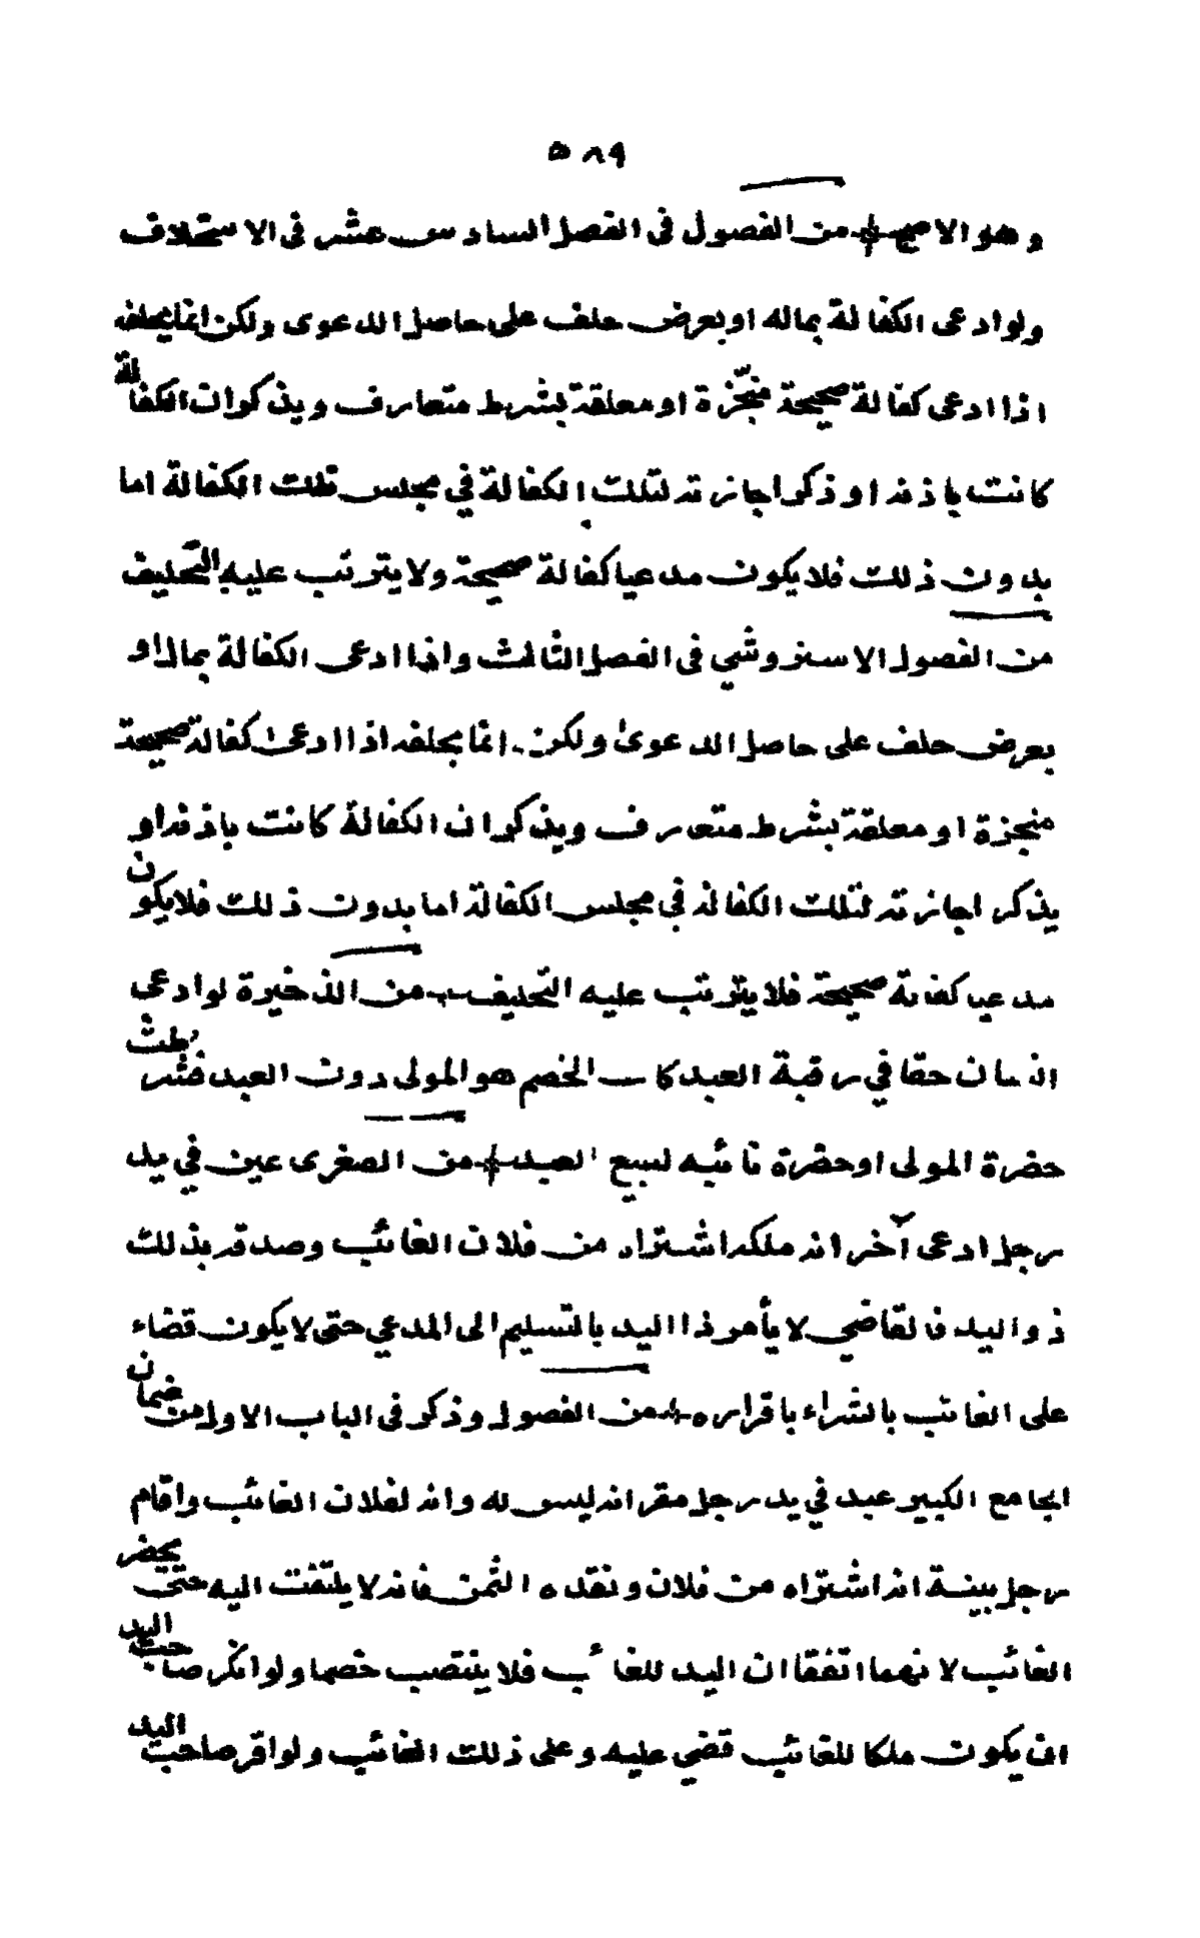 ٥٨٩
وهو الاصح من الفصول فى الفصل السادس عشر فى الاستحلاف
ولوادعى الكفالة بماله اوبعرض حلف على حاصل الدعوى ولكن انما يحلفه
اذا ادعى كفالة صحيحة منجّزة او معلقة بشرط متعارف ويذكر ان الكفالة
كانت باذنه او ذكر اجازته لتلك الكفالة في مجلس تلك الكفالة اما
بدون ذلك فلا يكون مدعيا كفالة صحيحة ولا يترتب عليه التحليف
من الفصول الاستروشني فى الفصل الثالث واذا ادعى الكفالة بمال او
بعرض حلف على حاصل الدعوى ولكن انما يحلفه اذا ادعى كفالة صحيحة
منجزة او معلقة بشرط متعارف ويذكر ان الكفالة كانت باذنه او
يذكر اجازته لتلك الكفالة في مجلس الكفالة اما بدون ذلك فلا يكون
مدعيا كفالة صحيحة فلا يترتب عليه التحليف من الذخيرة لو ادعى
انسان حقا في رقبة العبد كان الخصم هو المولى دون العبد فتشرطت
حضرة المولى او حضرة نائبه لبيع العبد من الصغرى عين في يد
رجل ادعى آخر انه ملكه اشتراه من فلان الغائب وصدقه بذلك
ذو اليد فالقاضي لا يأمر ذا اليد بالتسليم الى المدعي حتى لا يكون قضاء
على الغائب بالشراء باقراره من الفصول وذكر فى الباب الاول من ضمان
الجامع الكبير عبد في يد رجل مقر انه ليس له وانه لفلان الغائب واقام
رجل بينة انه اشتراه من فلان ونقده الثمن فانه لا يلتفت اليه حتى يحضر
الغائب لا نهما اتفقا ان اليد للغائب فلا ينتصب خصما ولو انكر صاحب اليد
ان يكون ملكا للغائب قضي عليه وعلى ذلك الغائب ولو اقر صاحب اليد